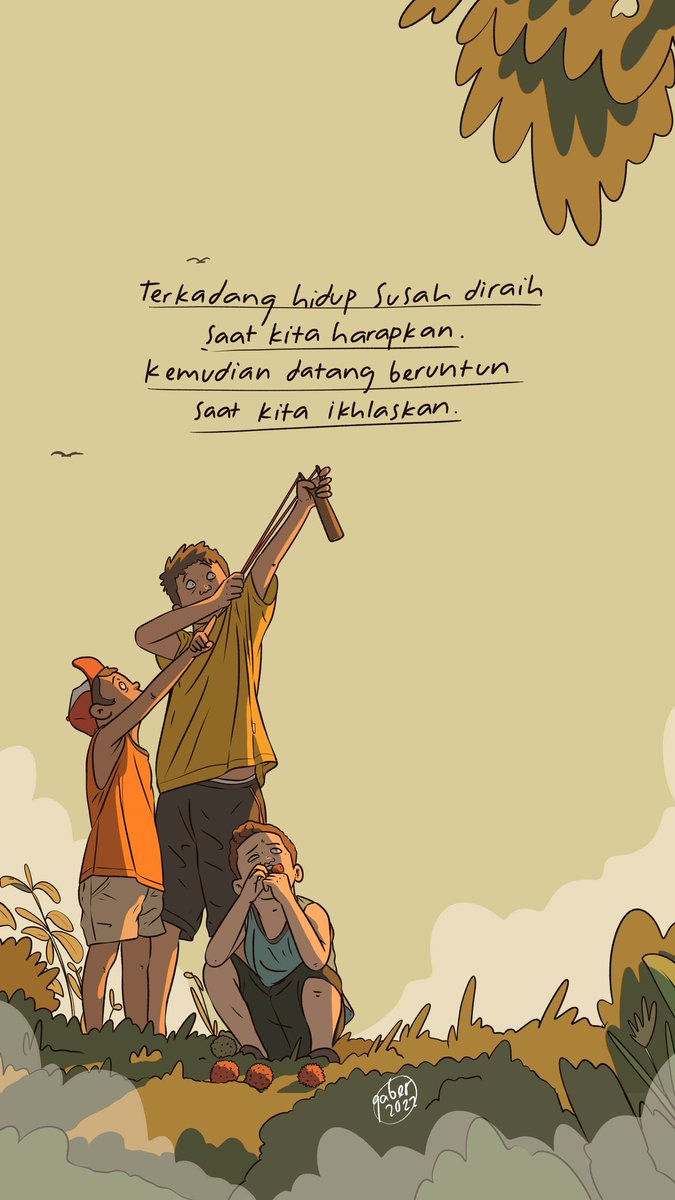 Terkadang hidup susah diraih
saat kita harapkan.
Kemudian datang beruntun
saat kita ikhlaskan.
gaber
2022